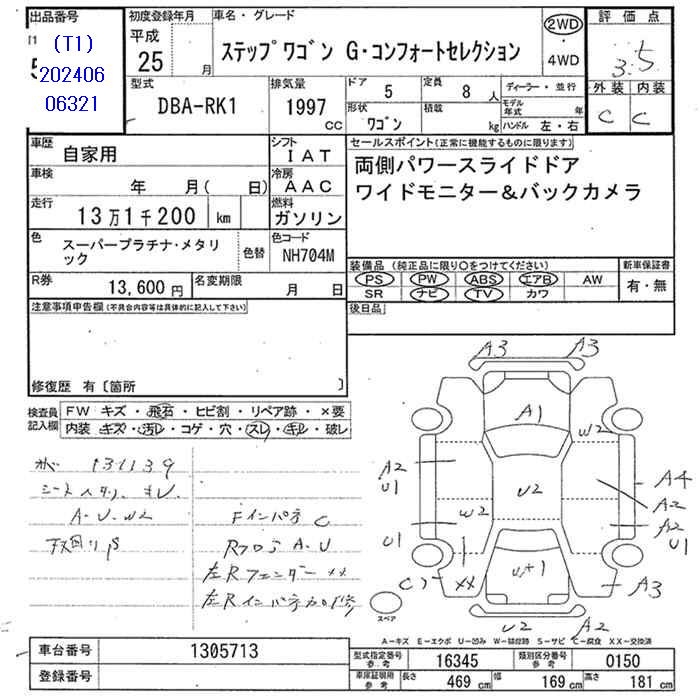 出品番号 初度登録年月 車名・グレード 評価点
(T1)
202406
06321
平成 25 月 ステップワゴン G・コンフォートセレクション 2WD ・ 4WD 3.5
外装 内装
C C
型式 DBA-RK1
排気量 1997 CC
ドア 5 定員 8 人
形状 ワゴン 積載 kg
ディーラー・並行
モデル年式 年
ハンドル 左・右
車歴 自家用
シフト IAT
車検 年 月( 日)
冷房 AAC
走行 13万1千200 km
燃料 ガソリン
色 スーパープラチナ・メタリック
色替
色コード NH704M
R券 13,600 円
名変期限 月 日
セールスポイント(正常に機能するものに限ります)
両側パワースライドドア
ワイドモニター&バックカメラ
装備品 (純正品に限り○をつけてください) 新車保証書
PS PW ABS エアB AW 有・無
SR ナビ TV カワ
後日品
注意事項申告欄(不具合内容等は具体的に記入して下さい)
修復歴 有〔箇所 〕
検査員記入欄
FW キズ・飛石・ヒビ割・リペア跡・×要
内装 キズ・汚レ・コゲ・穴・スレ・キレ・破レ
131139
A・U・W2
Fインパネ C
Rフロア A・U
左Rフェンダー XX
A3 A3
A1
W2
A2
U1
A4
U2
A2
W2
A2
U1
U1
XX
A3
U2 A2
スペア
A=キズ E=エクボ U=凹み W=補修跡 S=サビ C=腐食 XX=交換済
車台番号 1305713
登録番号
型式指定番号 参考 16345
類別区分番号 参考 0150
車庫証明用 参考 長さ 469 cm 幅 169 cm 高さ 181 cm